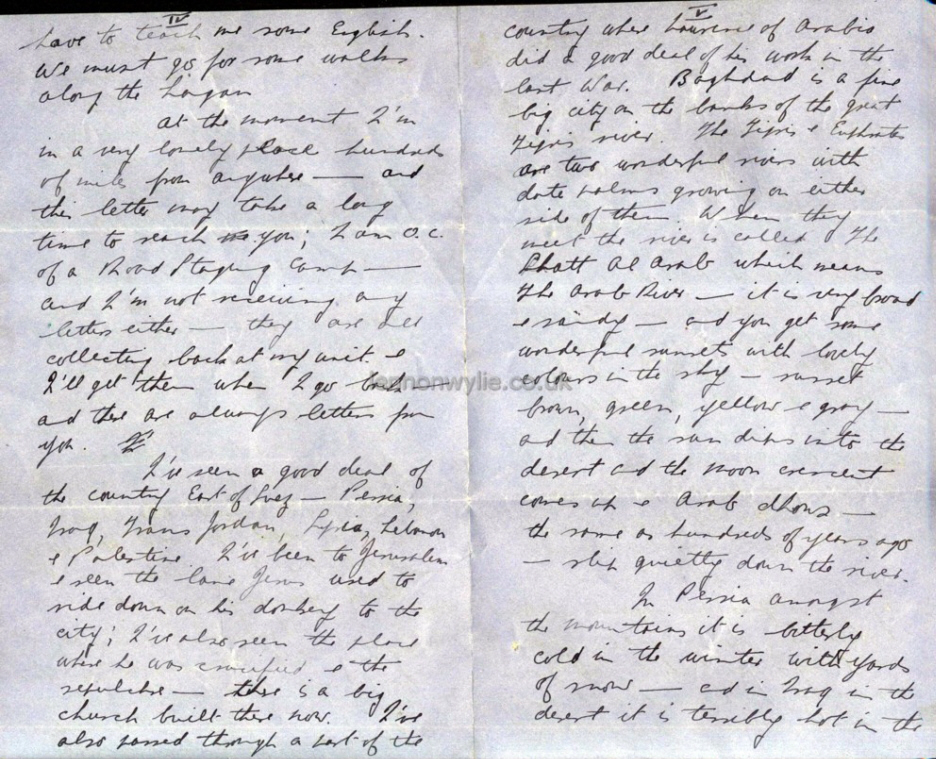 IV
have to teach me some English.
We must go for some walks
along the Lagan
At the moment I'm
in a very lonely place hundreds
of miles from anywhere — and
this letter may take a long
time to reach you; I am O.C.
of a Road Staging Camp —
and I'm not receiving any
letters either — they are all
collecting back at my unit &
I'll get them when I go back
and there are always letters from
you.
I've seen a good deal of
the country East of Suez — Persia,
Iraq, Trans Jordan, Syria, Lebanon
& Palestine. I've been to Jerusalem
& seen the lane Jesus used to
ride down on his donkey to the
city; I've also seen the place
where he was crucified & the
sepulchre — there is a big
church built there now. I've
also passed through a part of the
V
country where Lawrence of Arabia
did a good deal of his work in the
last War. Baghdad is a fine
big city on the banks of the great
Tigris river. The Tigris & Euphrates
are two wonderful rivers with
date palms growing on either
side of them. When they
meet the river is called The
Shatt Al Arab which means
The Arab River — it is very broad
& sandy — and you get some
wonderful sunsets with lovely
colours in the sky — russet
brown, green, yellow & gray —
and then the sun dips into the
desert and the moon crescent
comes up & Arab dhows —
the same as hundreds of years ago
— slip quietly down the river.
In Persia amongst
the mountains it is bitterly
cold in the winter with yards
of snow — and in Iraq in the
desert it is terribly hot in the
lennonwylie.co.uk